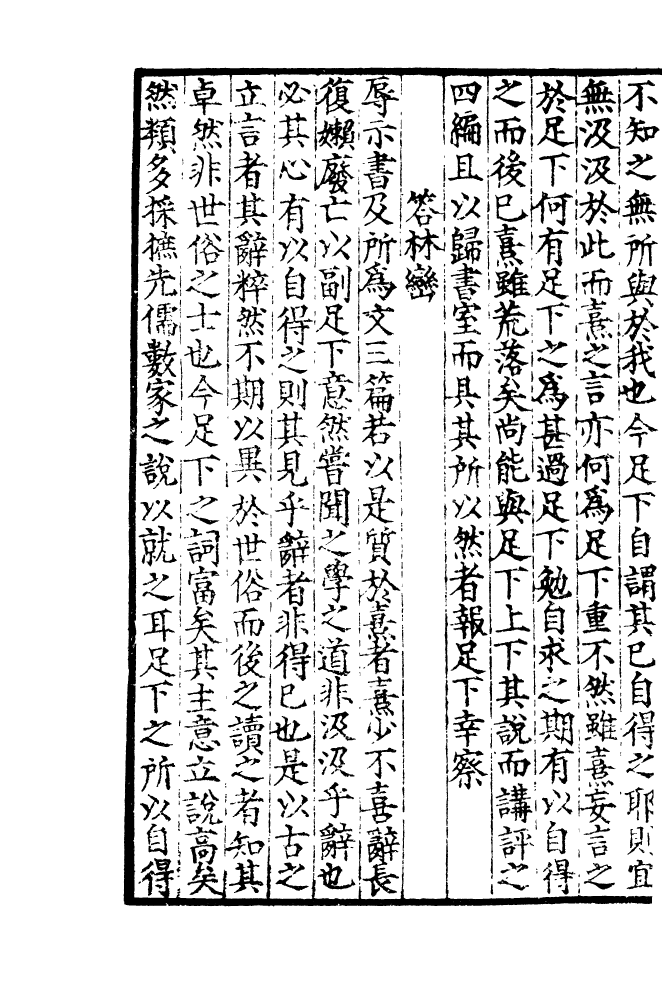 不知之無所與於我也今足下自謂其已自得之耶則宜
無汲汲於此而熹之言亦何爲足下重不然雖熹妄言之
於足下何有足下之爲甚過足下勉自求之期有以自得
之而後已熹雖荒落矣尚能與足下上下其說而講評之
四編且以歸書室而具其所以然者報足下幸察
答林巒
辱示書及所爲文三篇若以是質於熹者熹少不喜辭長
復嬾廢亡以副足下意然嘗聞之學之道非汲汲乎辭也
必其心有以自得之則其見乎辭者非得已也是以古之
立言者其辭粹然不期以異於世俗而後之讀之者知其
卓然非世俗之士也今足下之詞富矣其主意立說高矣
然類多採摭先儒數家之說以就之耳足下之所以自得